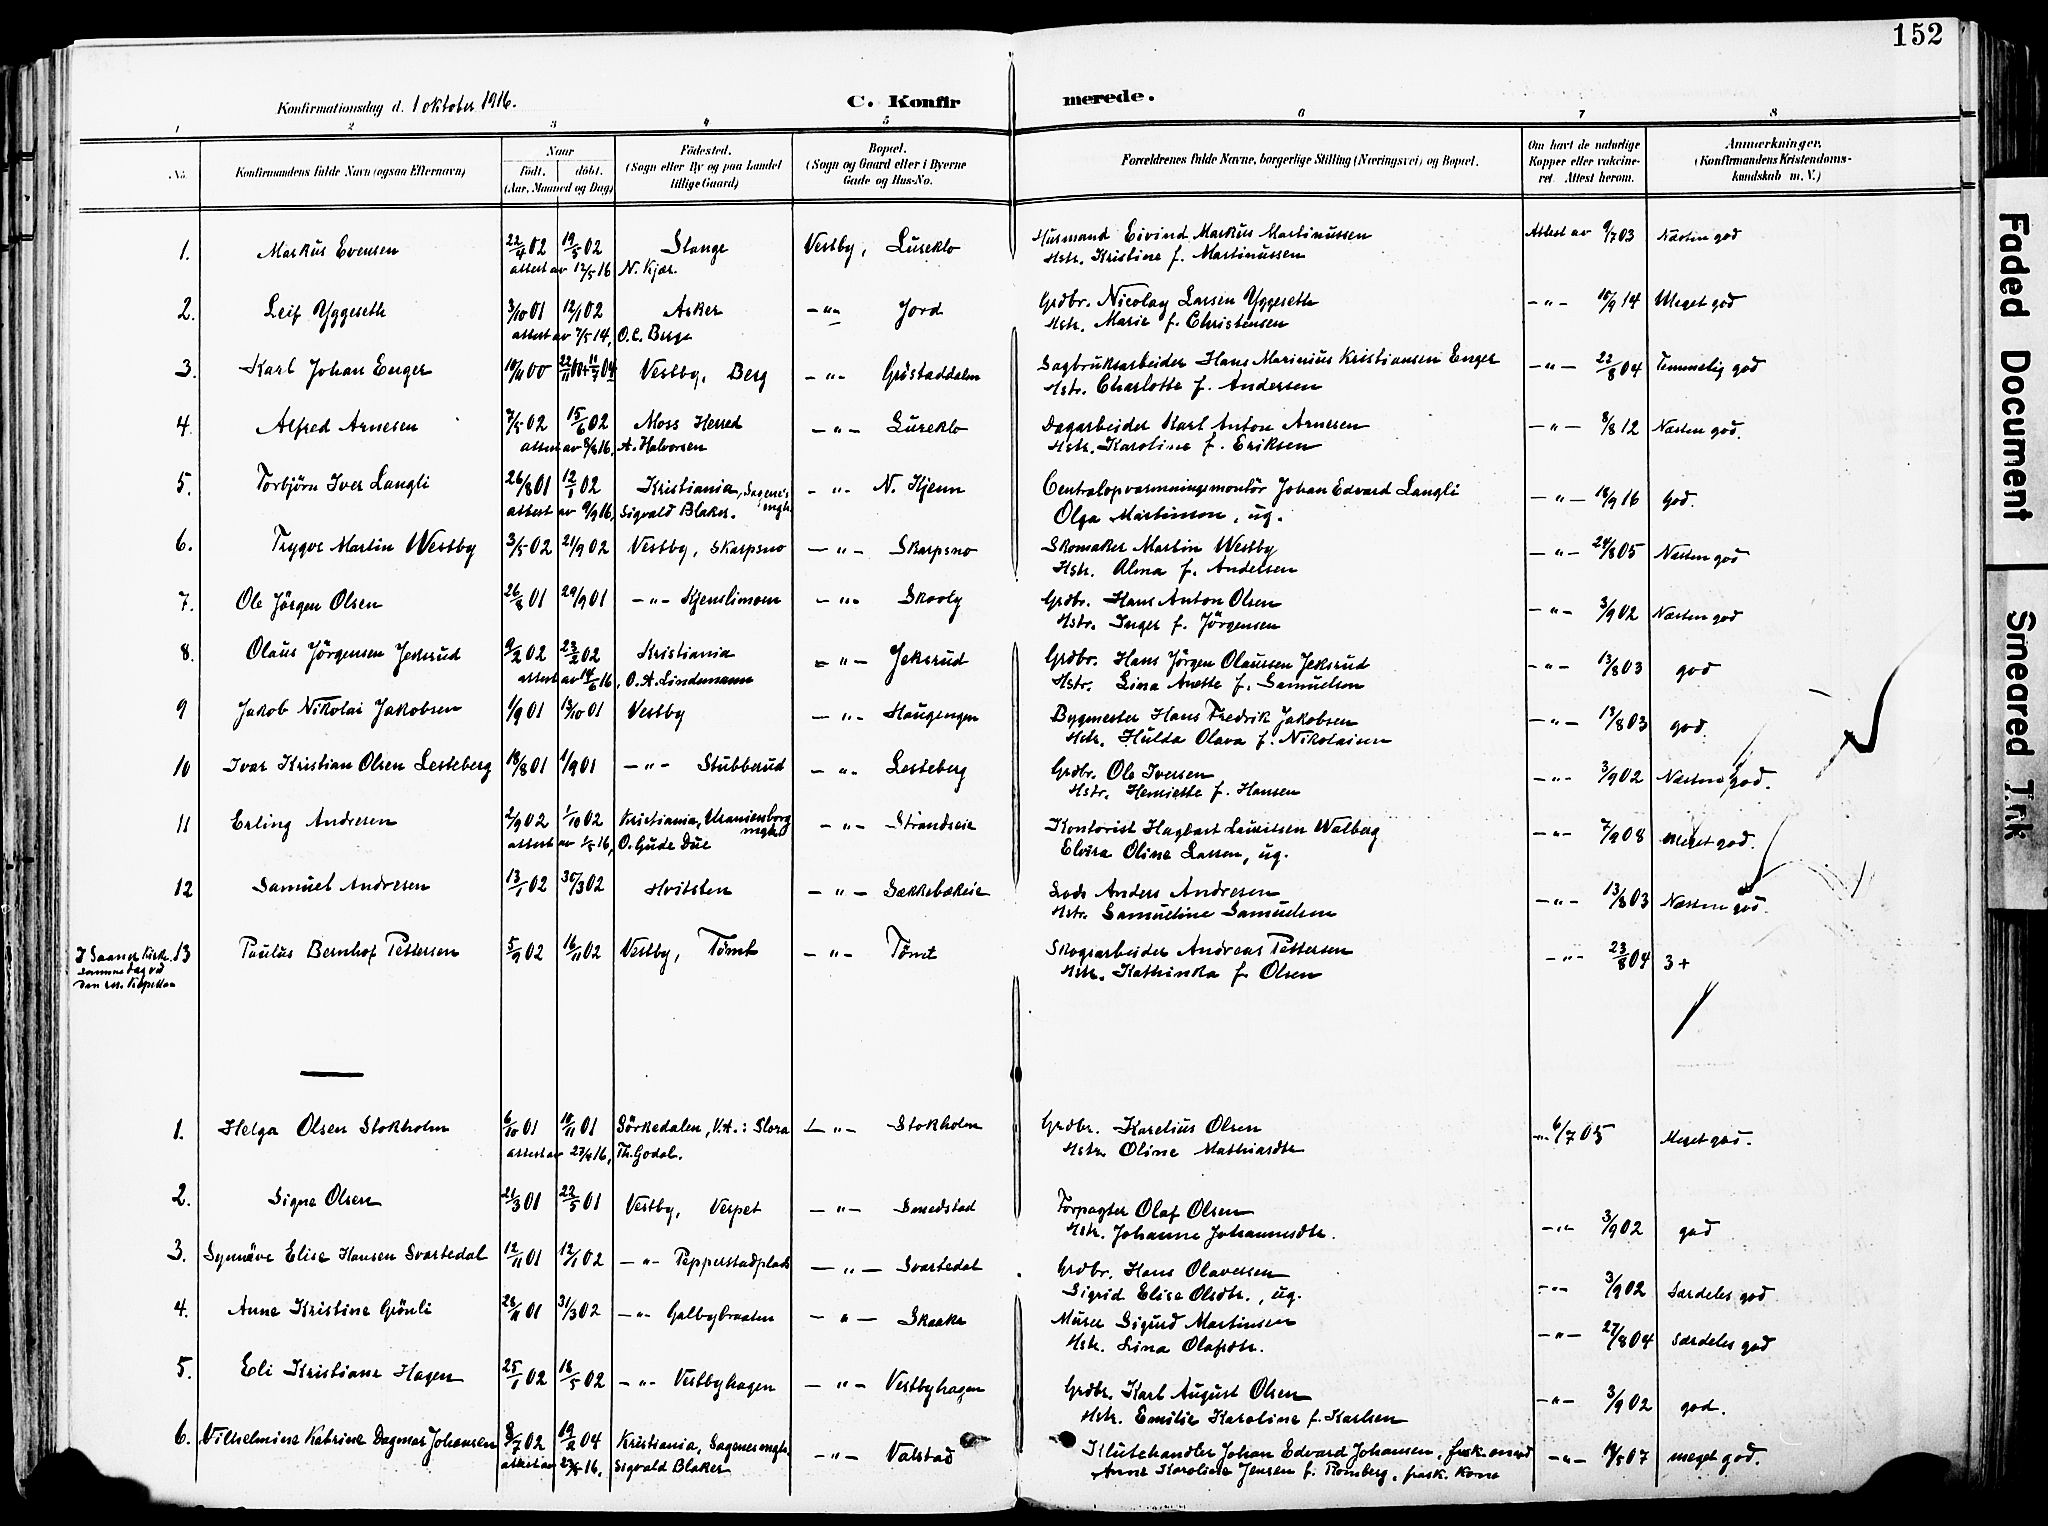 152
Konfirmationsdag d. 1 oktober 1916.
C. Konfirmerede.
1 2 3 4 5 6 7 8
No. Konfirmandens fulde Navn (ogsaa Efternavn) Naar født. døbt. (Aar, Maaned og Dag) Fødested. (Sogn eller By og paa Landet tillige Gaard) Bopæl. (Sogn og Gaard eller i Byerne Gade og Hus-No. Forældrenes fulde Navne, borgerlige Stilling (Næringsvei) og Bopæl. Om havt de naturlige Kopper eller vaccineret. Attest herom. Anmærkninger. (Konfirmandens Kristendomskundskab m. V.)
1. Markus Evensen 22/4 02 19/5 02 Stange Vestby, Luseklo Husmand Eivind Markus Martinussen Attest av 9/7 03 Næsten god
attest av 12/5 16 N. Kjær. Hstr. Kristine f. Martinussen
2. Leif Yggeseth 3/10 01 12/1 02 Asker -"- Jord Grdbr. Nicolay Larsen Yggeseth -"- 10/9 14 Meget god
attest av 7/5 14, O.C. Berge Hstr. Marie f. Christensen
3. Karl Johan Enger 10/11 00 Vestby, Berg -"- Gröstaddalen Sagbruksarbeider Hans Marinius Kristiansen Enger -"- 22/8 04 Temmelig god
Hstr. Charlotte f. Andersen
4. Alfred Arnesen 7/5 02 15/6 02 Moss Herred -"- Luseklo Dagarbeider Karl Anton Arnesen -"- 8/8 12 Næsten god.
attest av 8/8 16, A. Halvorsen Hstr. Karoline f. Eriksen
5. Torbjörn Iver Langli 26/8 01 12/1 02 Kristiania, Sagenes mgh. -"- N. Kjenn Centralopvarmningsmontör Johan Edvard Langli -"- 18/9 16 God.
attest av 9/9 16, Sigvald Blaker. Olga Martinson, ug.
6. Trygve Martin Westby 3/5 02 21/9 02 Vestby, Skarpsno -"- Skarpsno Skomaker Martin Westby -"- 24/8 05 Næsten god
Hstr. Alma f. Andersen
7. Ole Jörgen Olsen 26/8 01 29/9 01 -"- Kjenslimoen -"- Skovly Grdbr. Hans Anton Olsen -"- 3/9 02 Næsten god
Hstr. Inger f. Jörgensen
8. Olaus Jörgensen Jeksrud 9/2 02 23/2 02 Kristiania -"- Jeksrud Grdbr. Hans Jörgen Olaussen Jeksrud -"- 13/8 03 god
attest av 14/6 16, O.A. Lindemann Hstr. Lina Anette f. Samuelsen
9 Jakob Nikolai Jakobsen 1/9 01 13/10 01 Vestby -"- Haugengen Bygmester Hans Fredrik Jakobsen -"- 13/8 03 god.
Hstr. Hulda Olava f. Nikolaisen
10 Ivar Kristian Olsen Lesteberg 18/8 01 1/9 01 -"- Stubberud -"- Lesteberg Grdbr. Ole Iversen -"- 3/9 02 Næsten god.
Hstr. Henriette f. Hansen
11 Erling Andresen 2/9 02 1/10 02 Kristiania, Uranienborg mgh. -"- Strandseie Kontorist Hagbart Lauritsen Walberg -"- 7/9 08 meget god.
attest av 1/5 16, O. Gude Due Elvira Oline Larsen, ug.
12 Samuel Andresen 13/1 02 30/3 02 Hvitsten -"- Sækkebækeie Lods Anders Andresen -"- 13/8 03 Næsten god.
Hstr. Samueline Samuelsen
I Saaner Kirke samme dag ved den res. kapellan
13 Paulus Bernhof Pettersen 5/9 02 16/11 02 Vestby, Tömt -"- Tömt Skogsarbeider Andreas Pettersen -"- 23/8 04 3+
Hstr. Kathinka f. Olsen
1. Helga Olsen Stokholm 6/10 01 10/11 01 Sörkedalen, V.A.: Slora -"- Stokholm Grdbr. Karelius Olsen -"- 6/7 05 Meget god.
attest av 27/4 16, Th. Godal. Hstr. Oline Mathiasdtr
2. Signe Olsen 21/3 01 22/5 01 Vestby, Verpet -"- Smedstad Forpagter Olaf Olsen -"- 3/9 02 god
Hstr. Johanne Johannesdtr.
3. Synnöve Elise Hansen Svartedal 12/11 01 12/1 02 -"- Pepperstadplads -"- Svartedal Grdbr. Hans Olavessen -"- 3/9 02 Særdeles god
Sigrid Elise Olsdtr., ug.
4. Anne Kristine Grönli 28/11 01 31/3 02 -"- Galbybraaten -"- Skaake Murer Sigurd Martinsen -"- 27/8 04 Særdeles god
Hstr. Lina Olafsdtr.
5. Eli Kristiane Hagen 25/1 02 18/5 02 -"- Vestbyhagen -"- Vestbyhagen Grdbr. Karl August Olsen -"- 3/9 02 god.
Hstr. Emilie Karoline f. Karlsen
6. Vilhelmine Katrine Dagmar Johansen 8/7 02 19/2 04 Kristiania, Sagenes mgh. -"- Valstad Klutehandler Johan Edvard Johansen, frask. mand -"- 14/5 07 meget god.
attest av 27/5 16, Sigvald Blaker Anne Karoline Jensen f. Romberg, frask. Kone
Faded Document
Smeared Ink